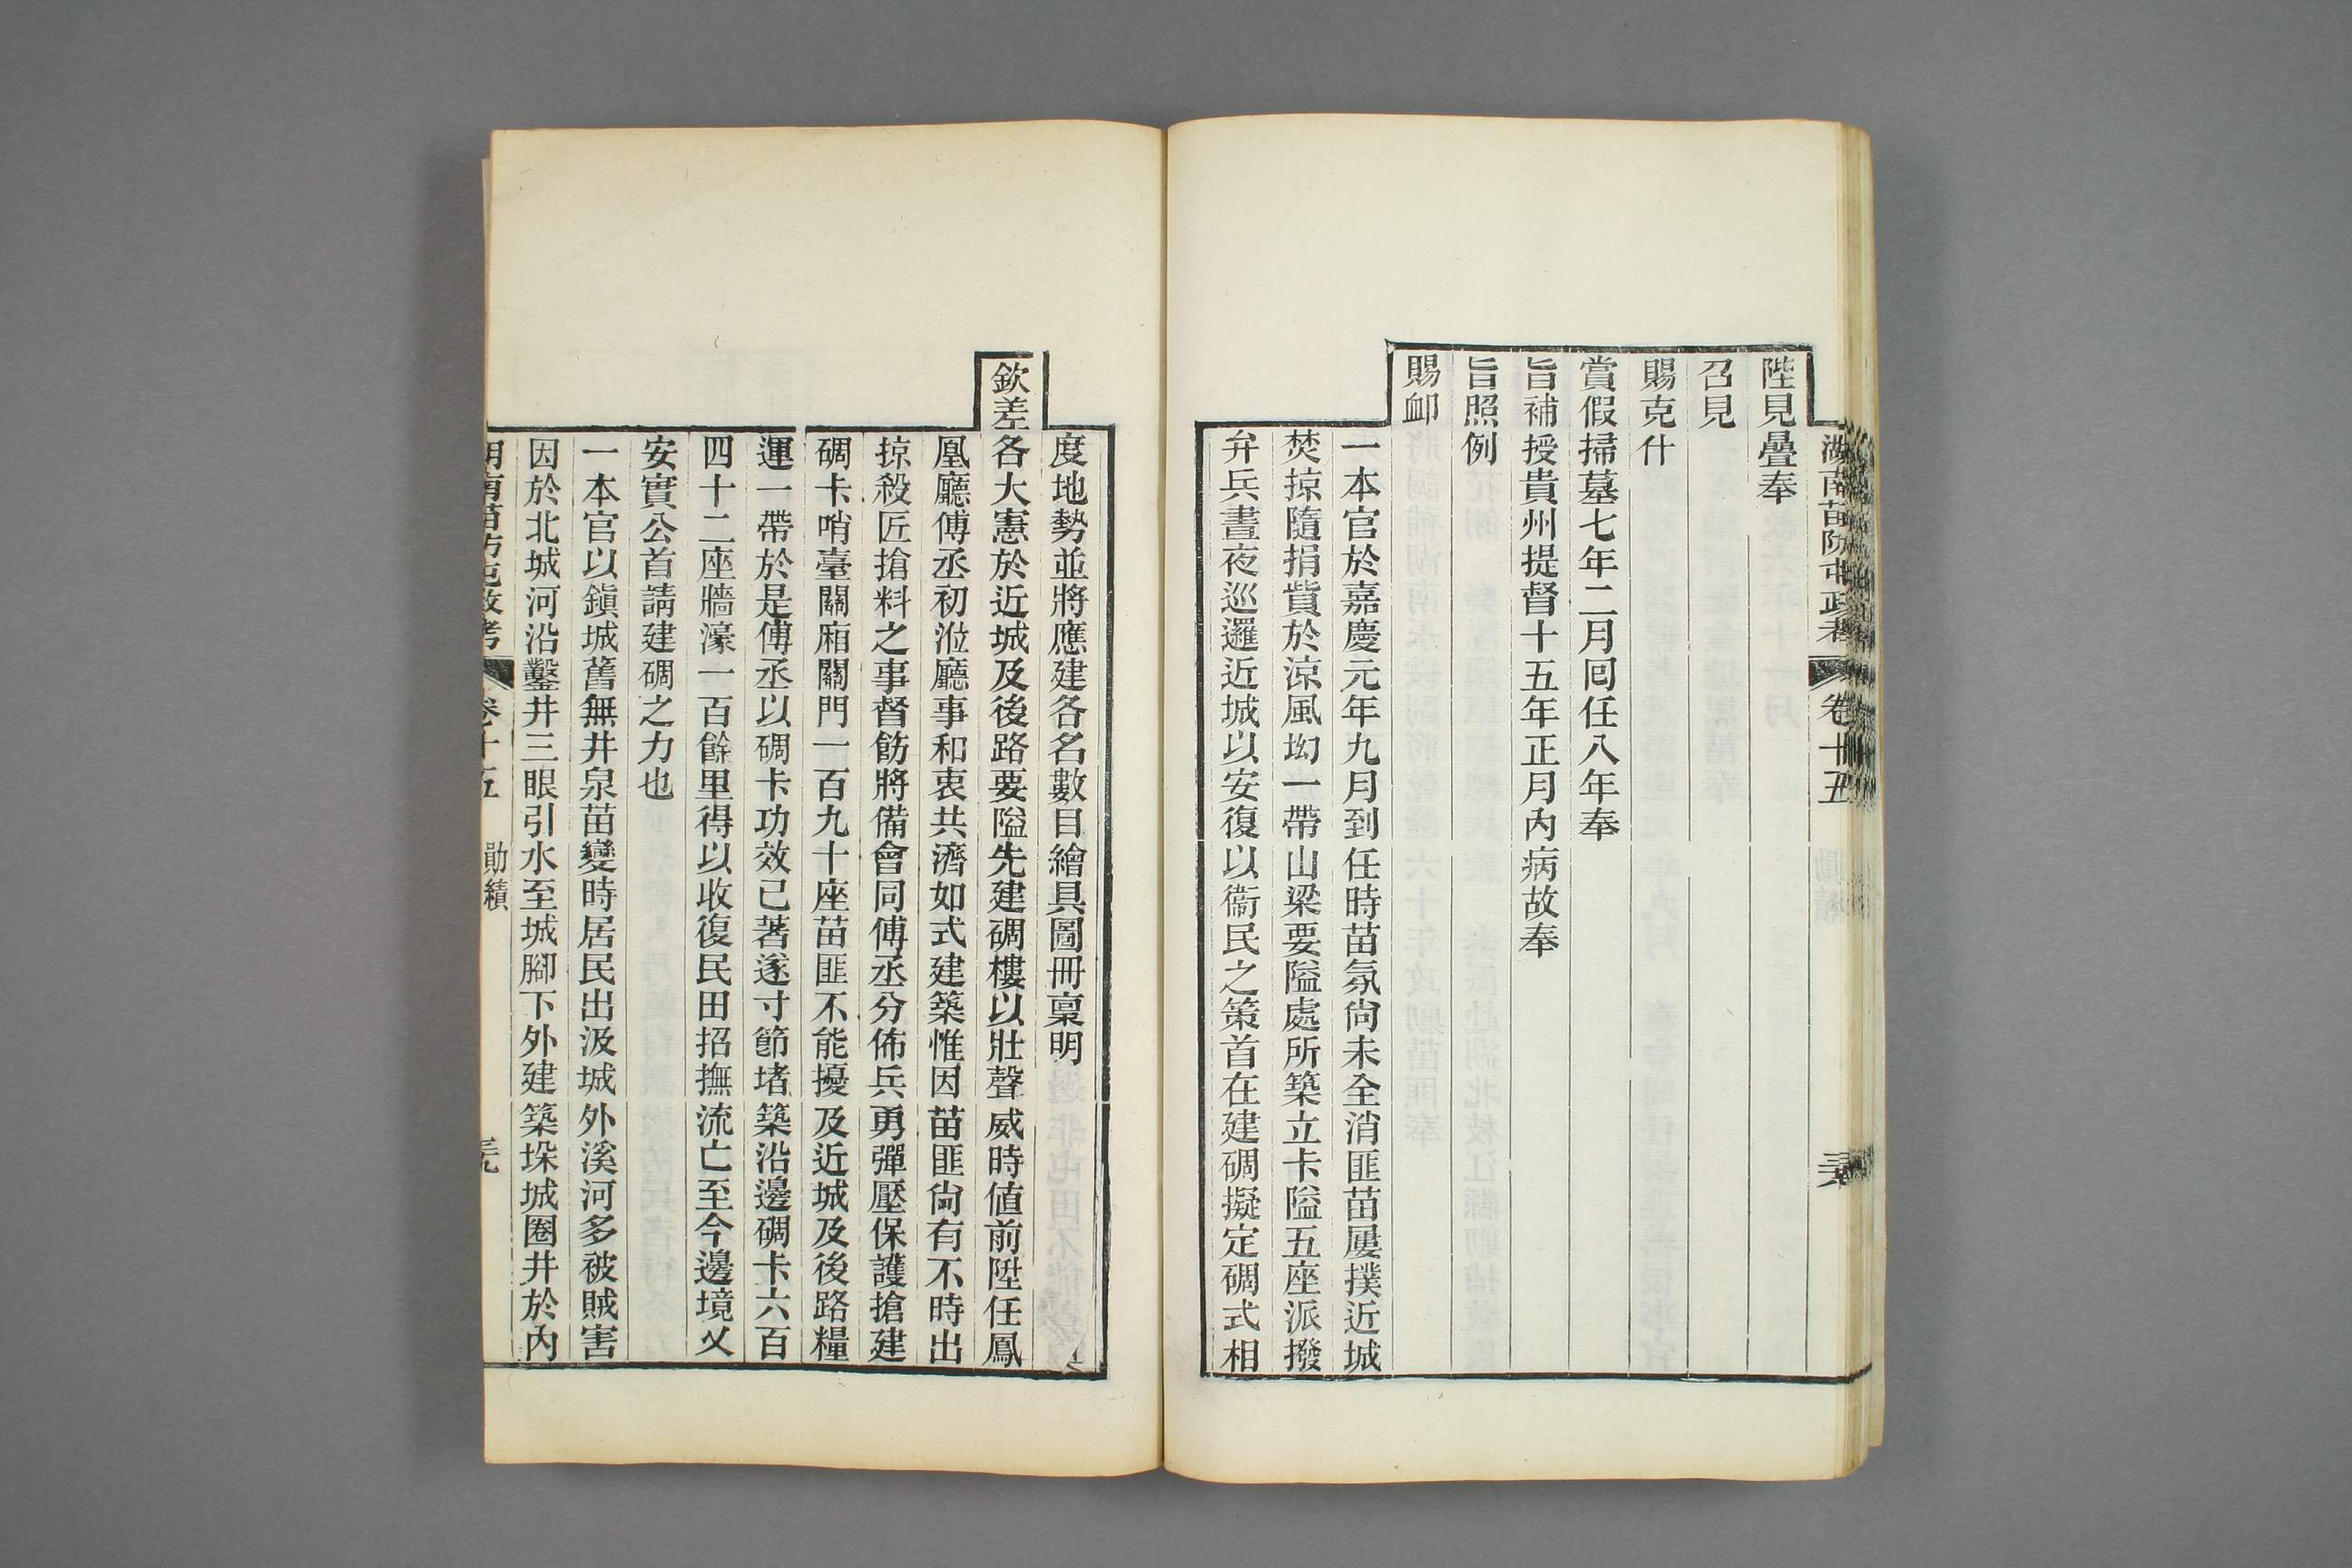 湖南苗防屯政考 卷十五 勛績
陛見疊奉
召見
賜克什
賞假掃墓七年二月回任八年奉
旨補授貴州提督十五年正月內病故奉
旨照例
賜卹
一本官於嘉慶元年九月到任時苗氛尙未全消匪苗屢撲近城
焚掠隨捐貲於涼風坳一帶山梁要隘處所築立卡隘五座派撥
弁兵晝夜巡邏近城以安復以衞民之策首在建碉擬定碉式相
度地勢並將應建各名數目繪具圖冊稟明
欽差各大憲於近城及後路要隘先建碉樓以壯聲威時値前陞任鳳
凰廳傅丞初涖廳事和衷共濟如式建築惟因苗匪尙有不時出
掠殺匠搶料之事督飭將備會同傅丞分佈兵勇彈壓保護搶建
碉卡哨臺關廂關門一百九十座苗匪不能擾及近城及後路糧
運一帶於是傅丞以碉卡功效已著遂寸節堵築沿邊碉卡六百
四十二座牆濠一百餘里得以收復民田招撫流亡至今邊境乂
安實公首請建碉之力也
一本官以鎭城舊無井泉苗變時居民出汲城外溪河多被賊害
因於北城河沿鑿井三眼引水至城腳下外建築垛城圈井於內
湖南苗防屯政考 卷十五 勛績 三九